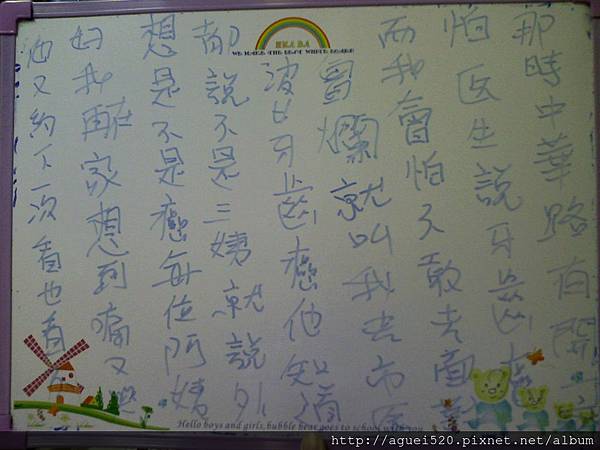 那時中華路有開
怕医生說牙齒癌
而我會怕不敢去面
當爛就叫我去市医
波女牙齒癌他知道
都說不是三姨就說外
想是不是癌每位阿姨
好我在家想到痛又
也又約下一次看也看
EKA BA
WE MAKE THE BEST WHITE BOARD
Hello boys and girls, bubble bear goes to school with you
http://aguei520.pixnet.net/album